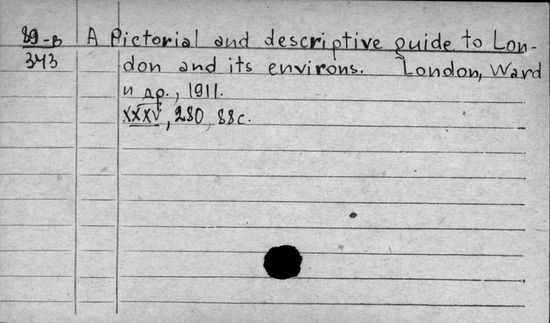 89-в A Pictorial and descriptive guide to Lon-
343 don and its environs. London, Ward
и др., 1911.
XXXV, 280, 88с.